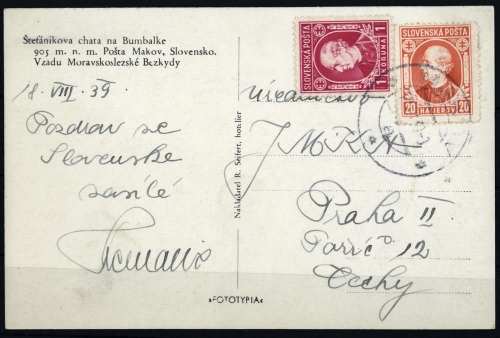 Štefánikova chata na Bumbalke
905 m. n. m. Pošta Makov, Slovensko.
Vzadu Moravskoslezské Bezkydy
18. VIII. 39.
Pozdrav ze
Slovenska
zasílá
Nakladatel R. Seifert, hotelier
»FOTOTYPIA«
SLOVENSKÁ POŠTA
1 KORUNA 1
SLOVENSKÁ POŠTA
20 HALIEROV 20
Praha II
Poříč 12
Čechy